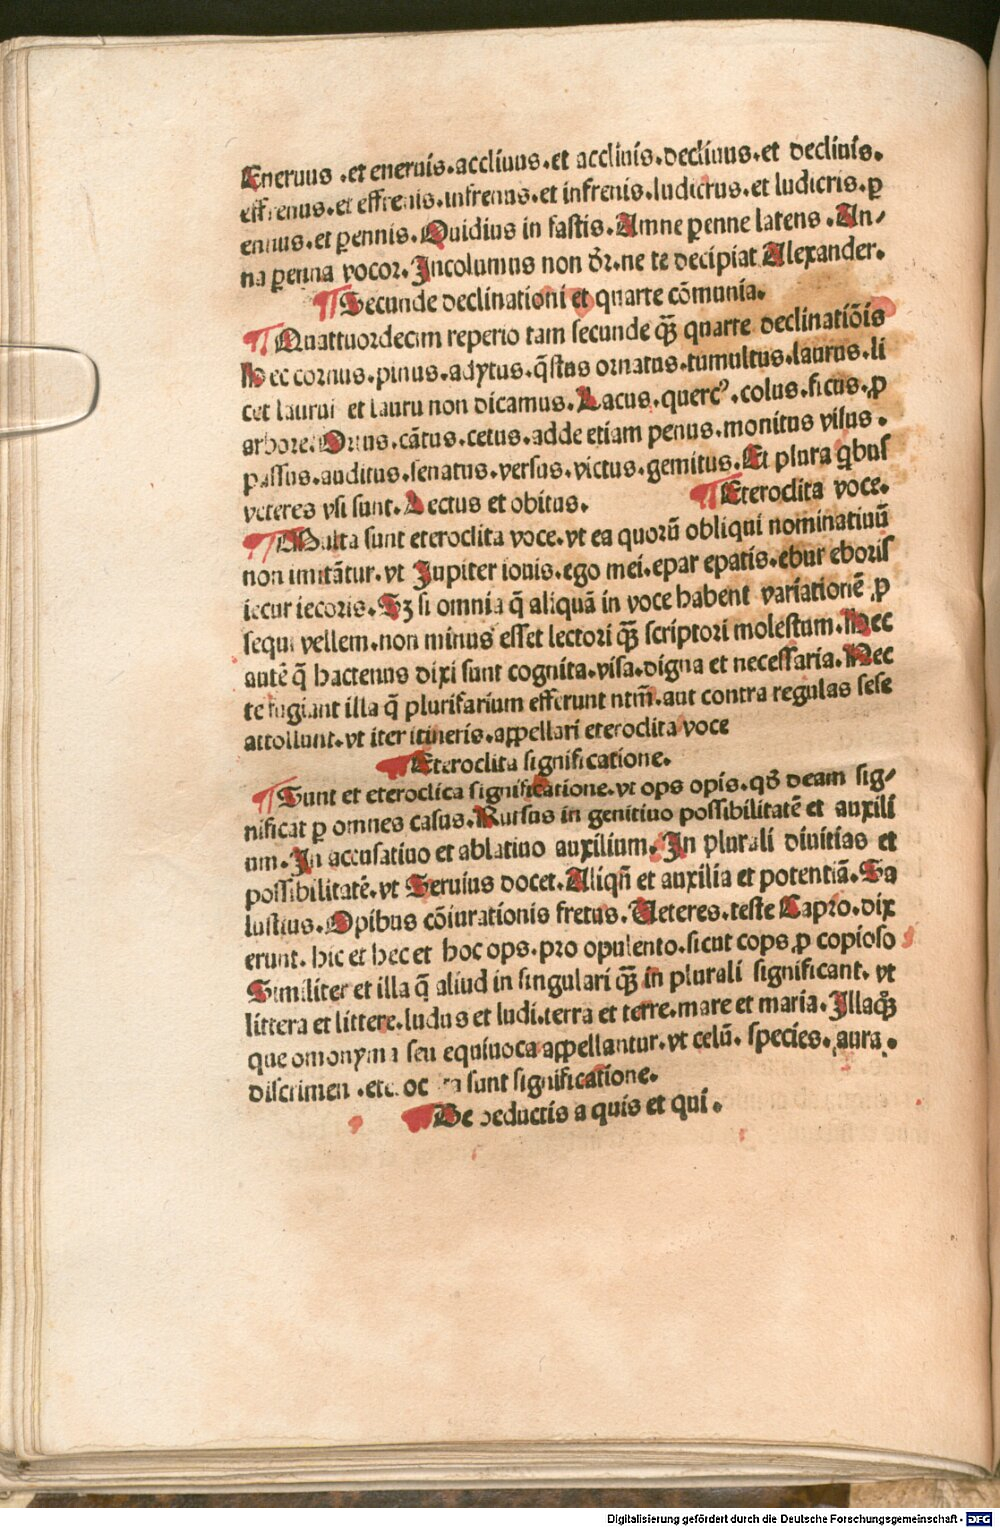 Eneruus .et eneruis.accliuus.et acclinis.decliuus.et decliuis.
effrenus.et effrenis.infrenus.et infrenis.ludicrus.et ludicris.ꝑ
ennus.et ꝑennis.Ouidius in fastis.Amne ꝑenne latens .An⸗
na ꝑenna vocor.Incolumus non dr̄.ne te decipiat Alexander.
¶Secunde declinationi et quarte cōmunia.
¶Quattuordecim reperio tam secunde qȝ̄ quarte declinatiōis
Hec cornus.pinus.adytus.q̄stus ornatus.tumultus.laurus.li
cet lauruı et lauru non dicamus.Lacus.querc⁹.colus.ficus.ꝓ
arbore.Ortus.cātus.cetus.adde etiam penus.monitus visus.
passus.auditus.senatus.versus.victus.gemitus.Et plura q̇bus
veteres vsi sunt.Lectus et obitus. ¶Eteroclita voce.
¶Multa sunt eteroclita voce.vt ea quorū obliqui nominatiuū
non imitātur.vt Jupiter iouis.ego mei.epar epatis.ebur eboris
iecur iecoris.Sȝ si omnia q̄ aliquā in voce habent variationē ꝓ
sequi vellem.non minus esset lectori qȝ̄ scriptori molestum.Hec
autē q̄ hactenus dixi sunt cognita.visa.digna et necessaria.Nec
te fugiant illa q̄ plurifarium efferunt ntm̄.aut contra regulas sese
attollunt.vt iter itineris.appellari eteroclita voce
¶Eteroclita significatione.
¶Sunt et eteroclica significatione.vt ops opis.qđ deam sig⸗
nificat ꝑ omnes casus.Rursus in genitiuo possibilitatē et auxili
um.In accusatiuo et ablatiuo auxilium.In plurali diuitias et
possibilitatē.vt Seruius docet.Aliqn̄ et auxilia et potentiā.Sa
lustius.Opibus cōiurationis fretus.Veteres.teste Capro.dix
erunt.hic et hec et hoc ops.pro opulento.sicut cops ꝓ copioso
Similiter et illa q̄ aliud in singulari qȝ̄ in plurali significant.vt
littera et littere.ludus et ludi.terra et terre.mare et maria.Illaqȝ̄
que omonyma seu equiuoca appellantur.vt celū.species.aura.
discrimen .etc. sunt significatione.
¶De deductis a quis et qui.
Digitalisierung gefördert durch die Deutsche Forschungsgemeinschaft - DFG